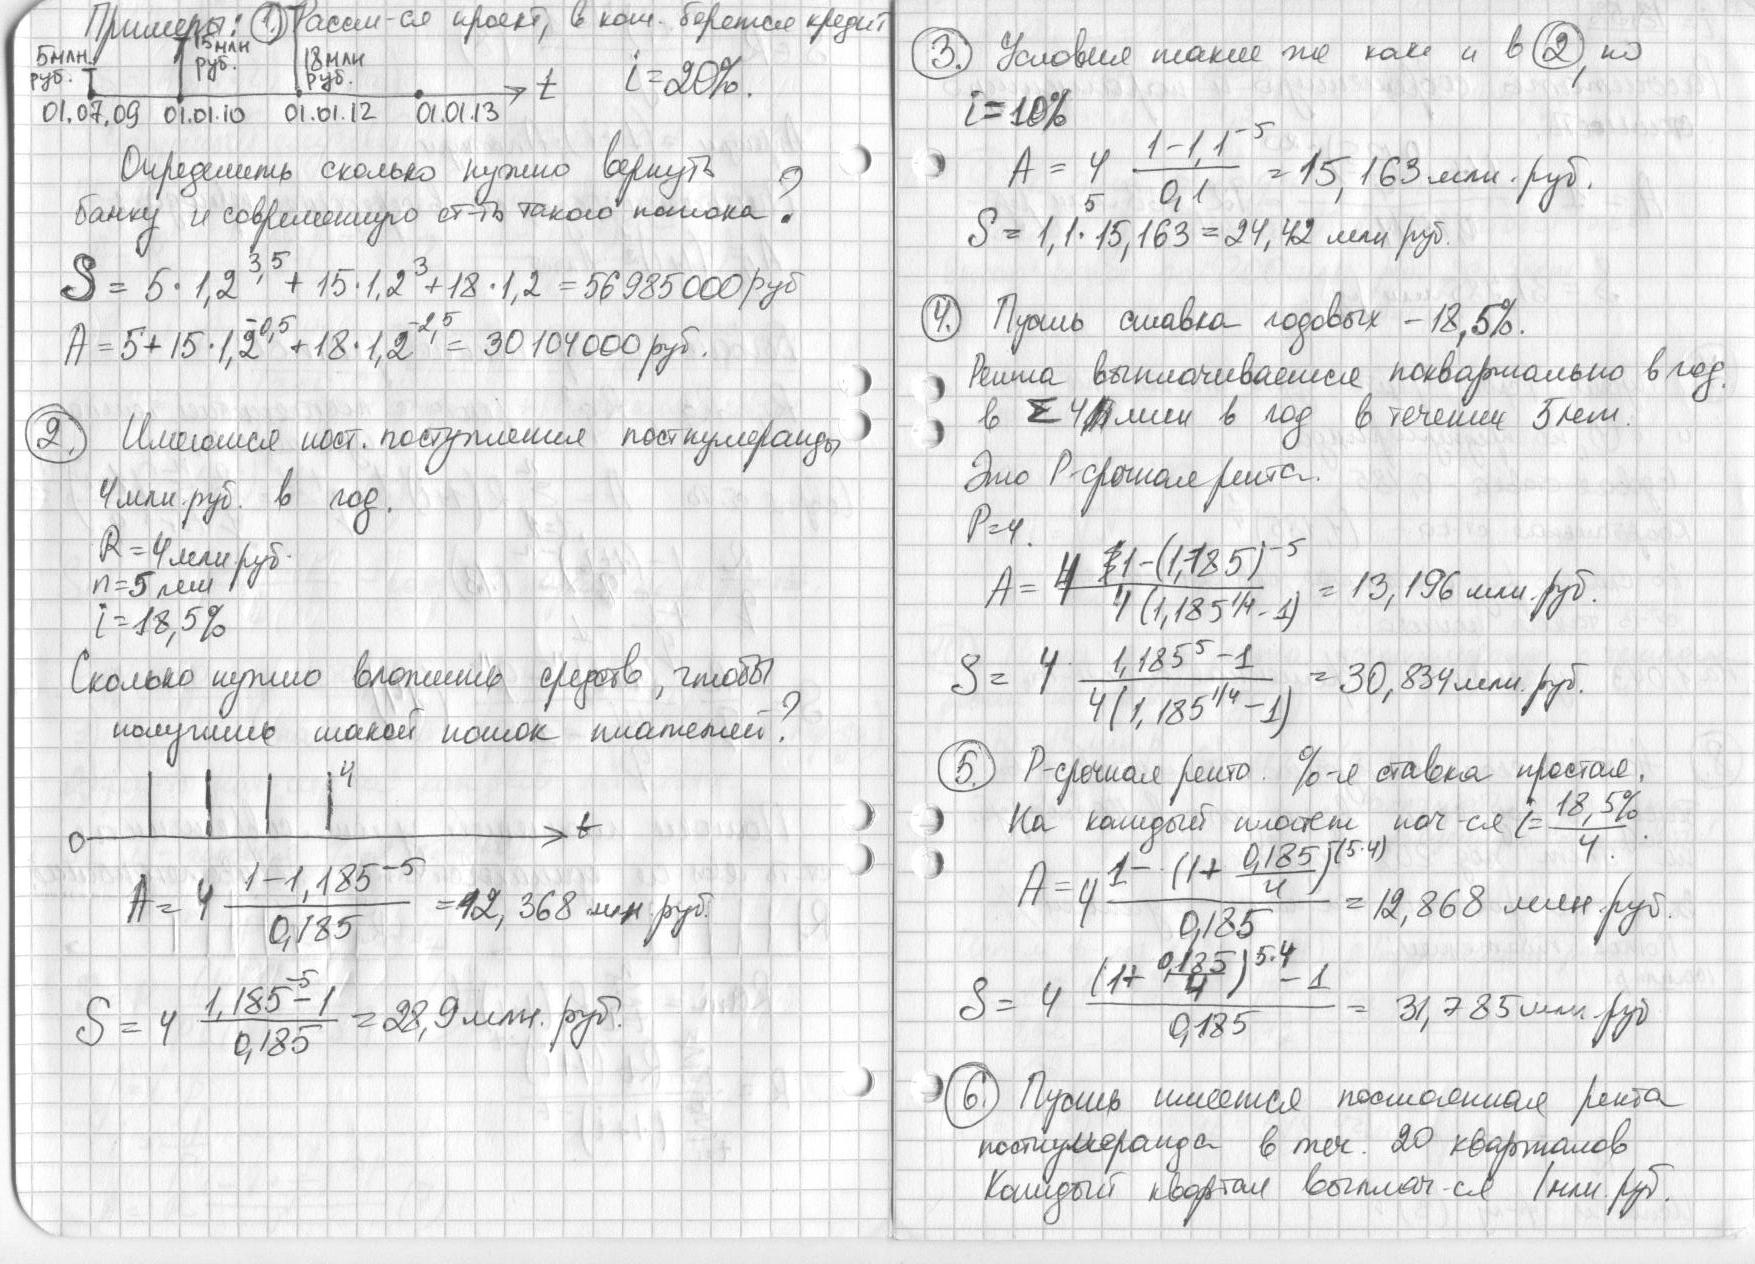 Примеры: 1. Рассм-ся проект, в кот. берется кредит
5 млн. руб. 15 млн руб. 18 млн руб. t i=20%.
01.07.09 01.01.10 01.01.12 01.01.13
Определить сколько нужно вернуть
банку и современную ст-ть такого потока?
S = 5·1,2^3,5 + 15·1,2^3 + 18·1,2 = 56985000 руб
A = 5+15·1,2^-0,5 + 18·1,2^-2,5 = 30104000 руб.
2. Имеются пост. поступления постнумеранды
4 млн.руб. в год.
R = 4 млн руб.
n=5 лет
i=18,5%
Сколько нужно вложить средств, чтобы
получить такой поток платежей?
4
0 t
A = 4 (1-1,185^-5)/0,185 = 12,368 млн руб.
S = 4 (1,185^-5-1)/0,185 = 28,9 млн. руб.
3. Условия такие же как и в 2, но
i=10%
A = 4 (1-1,1^-5)/0,1 = 15,163 млн. руб.
S = 1,1^5·15,163 = 24,42 млн руб.
4. Пусть ставка годовых - 18,5%.
Рента выплачивается поквартально в год.
в Σ 4 млн в год в течении 5 лет.
Это P-срочная рента.
P=4.
A = 4 (1-(1,185)^-5)/(4(1,185^1/4-1)) = 13,196 млн. руб.
S = 4 (1,185^5-1)/(4(1,185^1/4-1)) = 30,834 млн. руб.
5. P-срочная рента. %-я ставка простая.
На каждый платеж нач-ся i=18,5%/4.
A = 4 (1-(1+0,185/4)^(5·4))/0,185 = 12,868 млн. руб.
S = 4 ((1+0,185/4)^5·4-1)/0,185 = 31,785 млн. руб
6. Пусть имеется постоянная рента
постнумеранда в теч. 20 кварталов
Каждый квартал выплач-ся 1 млн. руб.